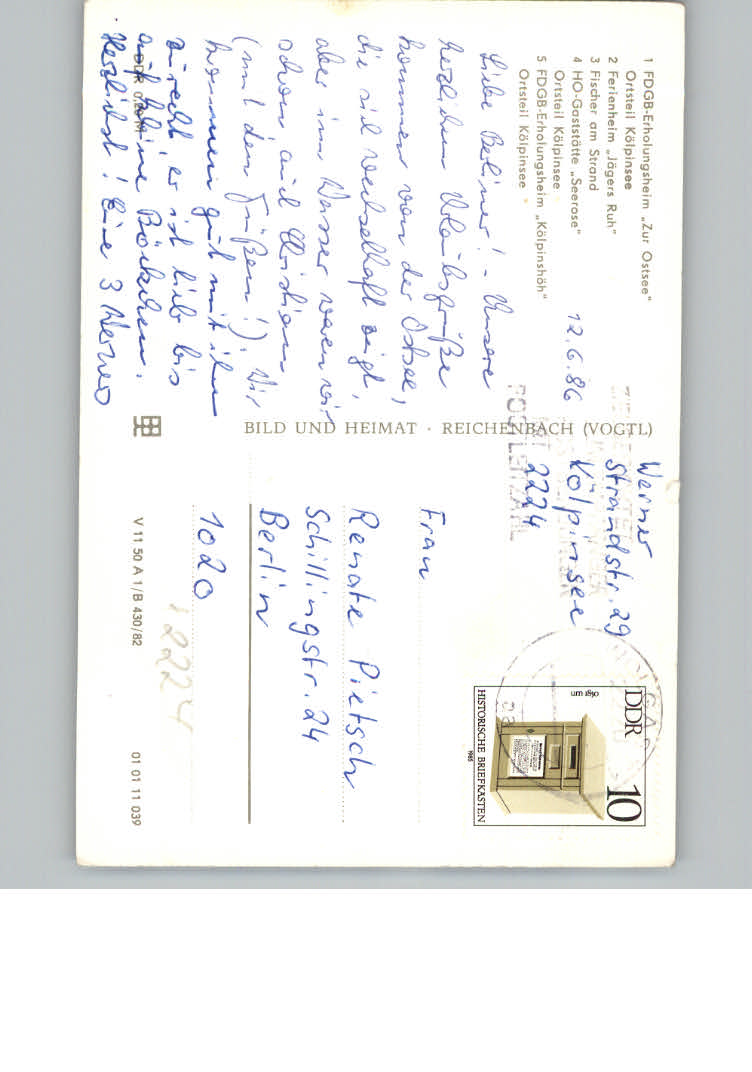 1 FDGB-Erholungsheim „Zur Ostsee"
Ortsteil Kölpinsee
2 Ferienheim „Jägers Ruh"
3 Fischer am Strand
4 HO-Gaststätte „Seerose"
Ortsteil Kölpinsee
5 FDGB-Erholungsheim „Kölpinshöh"
Ortsteil Kölpinsee
12.6.86
Liebe Berliner! - Unsere
herzlichen Urlaubsgrüße
kommen von der Ostsee,
die sich wechselhaft zeigt,
aber im Wasser waren wir
schon auch Christian
(mit den Füßen!). Wir
kommen gut mit ihm
zurecht er ist lieb bis
auf kleine Böckchen.
Herzlichst! Eure 3 Werner
DDR 0,20 M
BILD UND HEIMAT · REICHENBACH (VOGTL)
Werner
Strandstr. 29
Kölpinsee
2224
POSTLEITZAHL
DDR 10
um 1850
HISTORISCHE BRIEFKASTEN
1985
Frau
Renate Pietsch
Schillingstr. 24
Berlin
1020
2224
V 11 50 A 1/B 430/82
01 01 11 039